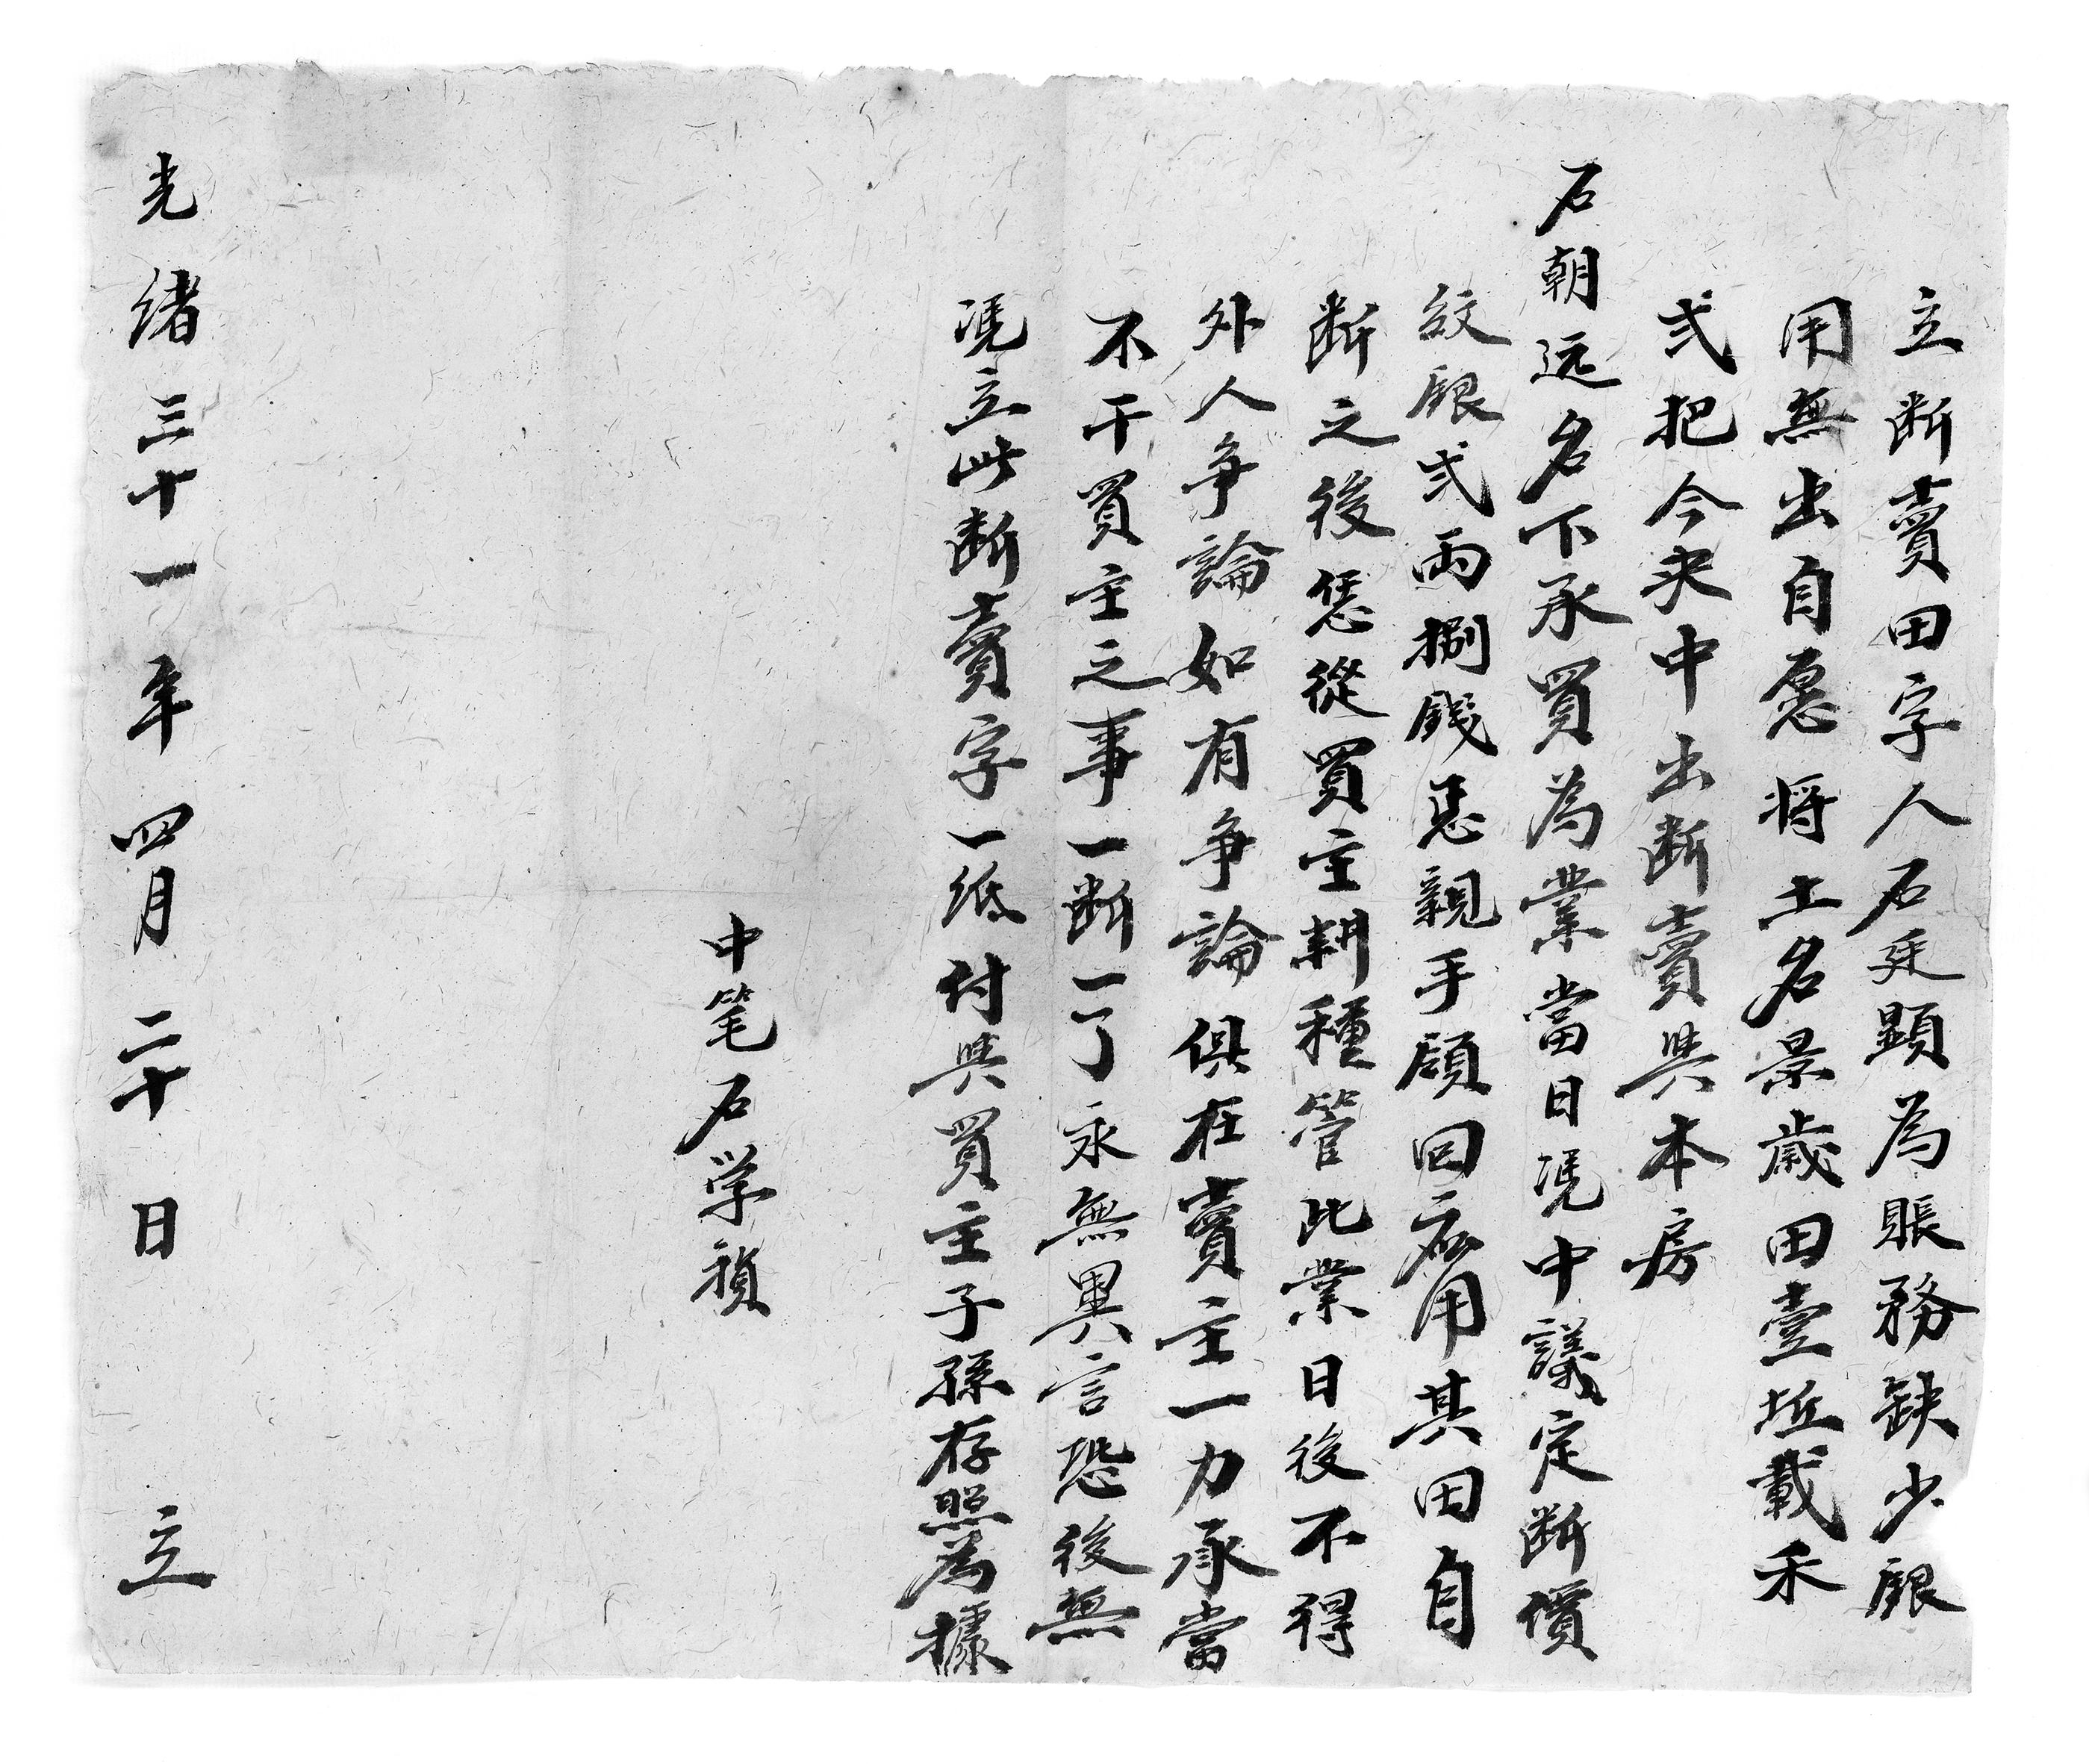 立断賣田字人石廷顕為賬務缺少銀
用無出自愿将土名景歳田壹坵載禾
弍把今央中出断賣與本房
石朝远名下承買為業當日凴中議定断價
紋銀弍両捌錢恁親手領回应用其田自
断之後恁從買主耕種管此業日後不得
外人争論如有争論俱在賣主一力承當
不干買主之事一断一了永無異言恐後無
凴立此断賣字一紙付與買主子孫存照為據
中笔石学禎
光緒三十一年四月二十日立